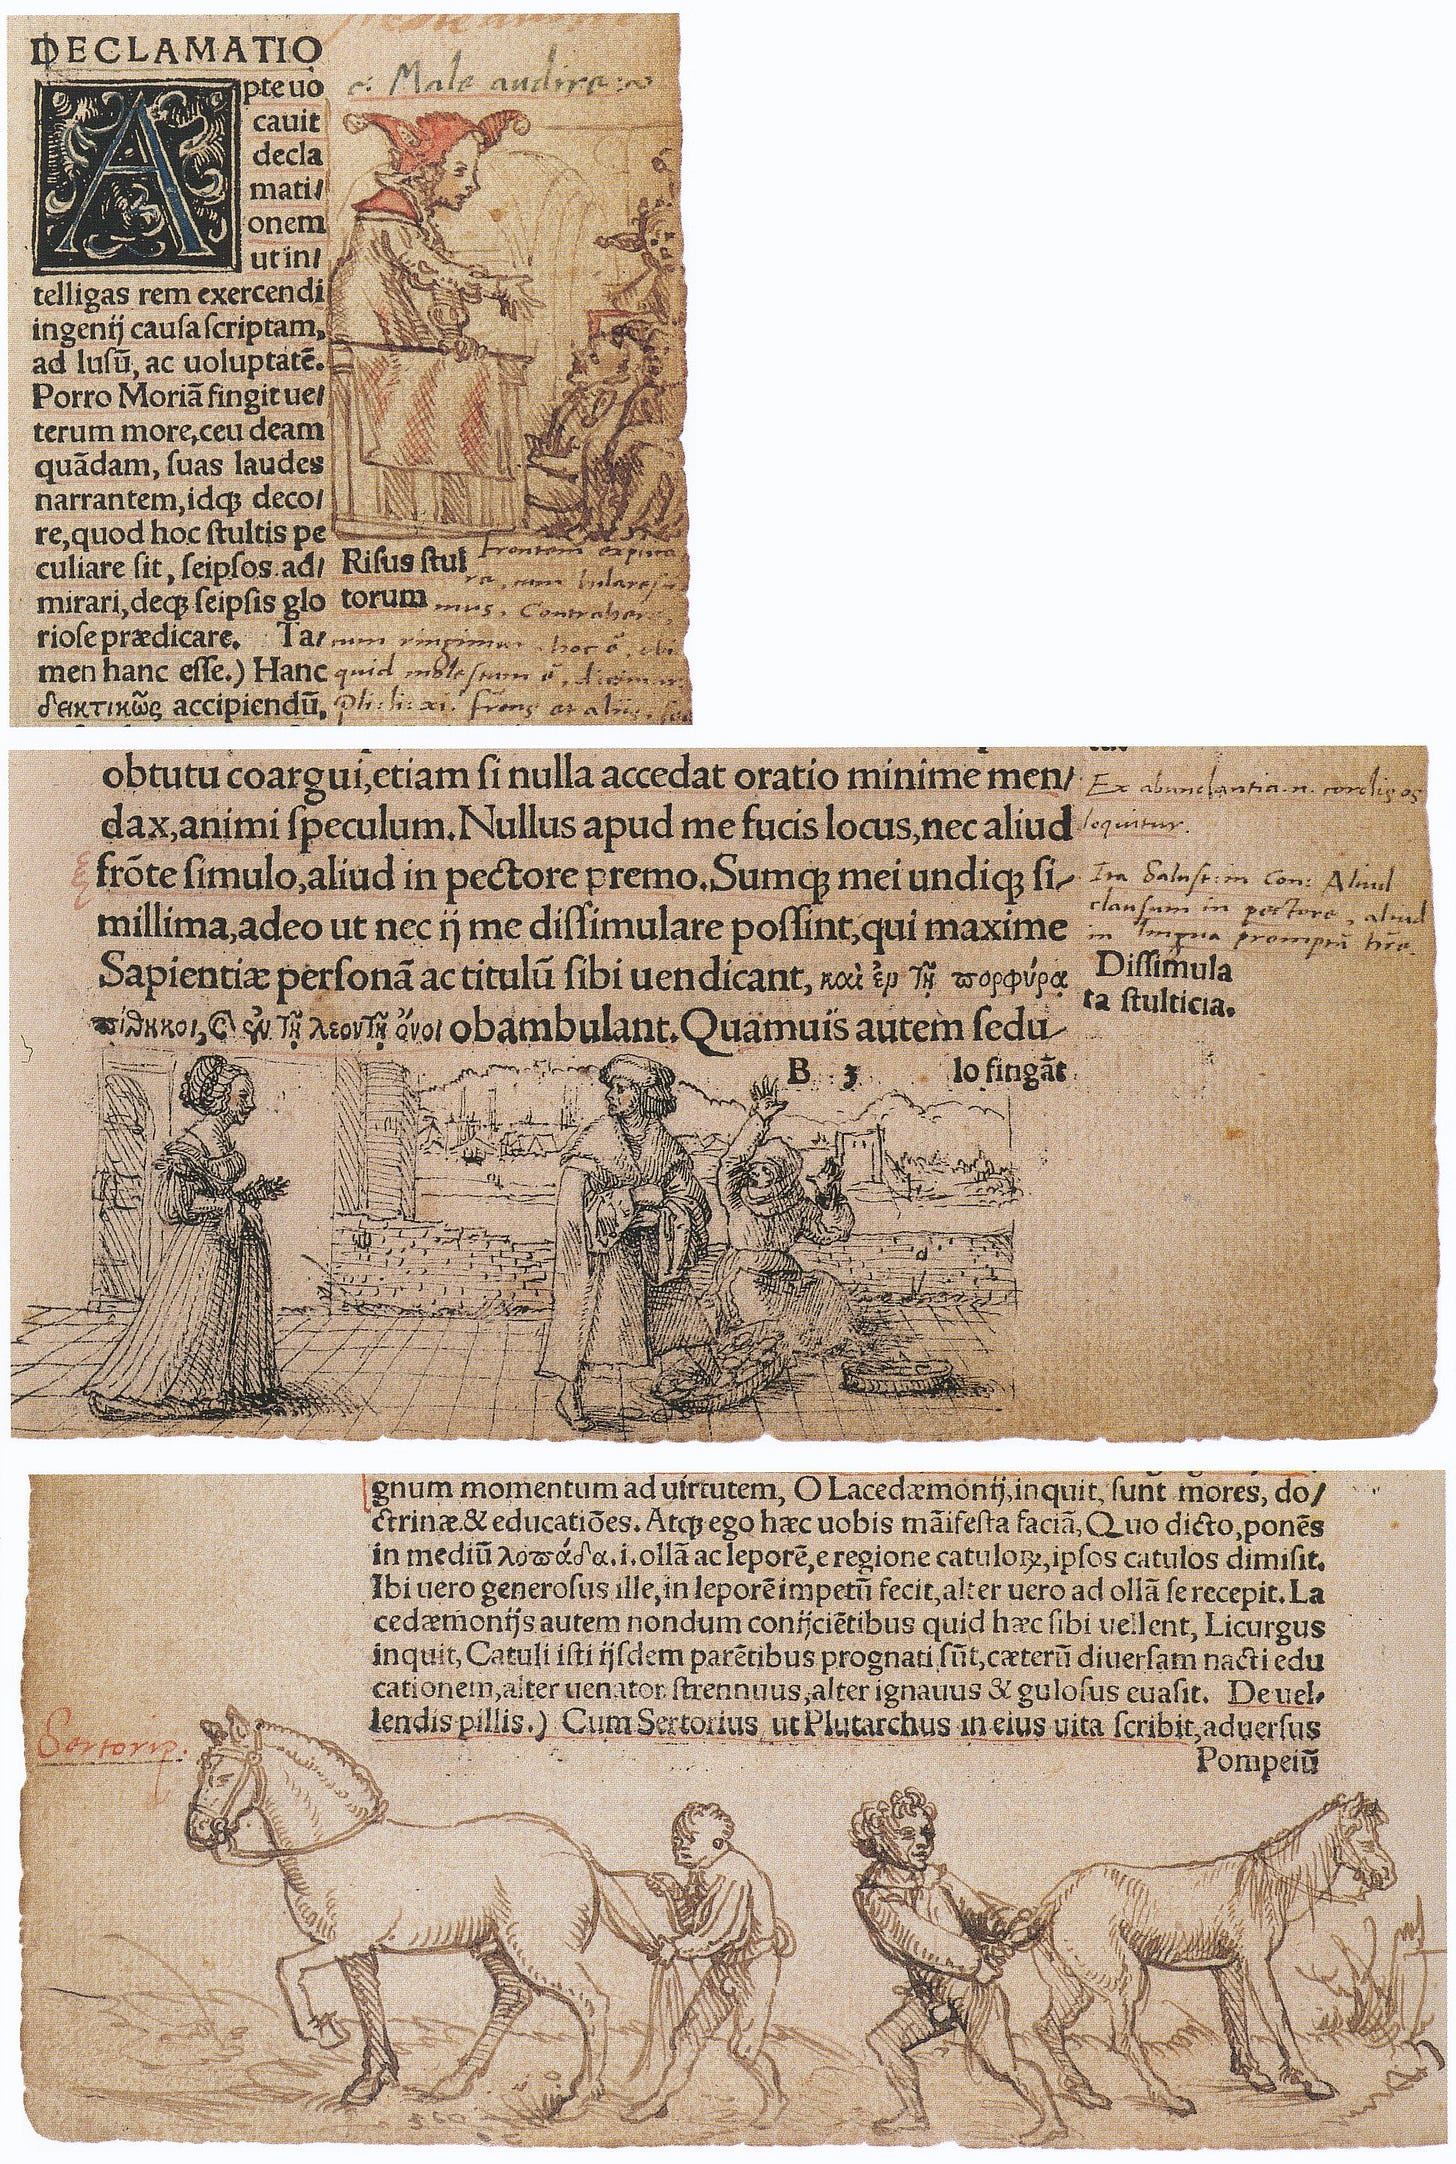 DECLAMATIO
c: Male audire
Apte uo
cauit
decla
mati/
onem
ut in/
telligas rem exercendi
ingenij cauſa ſcriptam,
ad luſū, ac uoluptatē.
Porro Moriā fingit ue/
terum more, ceu deam
quādam, ſuas laudes
narrantem, idqꝫ deco/
re, quod hoc ſtultis pe
culiare ſit, ſeipſos ad/
mirari, deqꝫ ſeipſis glo
rioſe prædicare. Ta/
men hanc eſſe.) Hanc
δεικτικῶς accipiendū,
Riſus ſtul
torum
Frontem
mus. Contrahere
cum ringimur
quid moleſtum
frons et aliis
obtutu coargui, etiam ſi nulla accedat oratio minime men/
dax, animi ſpeculum. Nullus apud me fucis locus, nec aliud
frōte ſimulo, aliud in pectore premo. Sumqꝫ mei undiqꝫ ſi/
millima, adeo ut nec ij me diſſimulare poſſint, qui maxime
Sapientiæ perſonā ac titulū ſibi uendicant, καὶ ἐν τῇ πορφύρᾳ
πίθηκοι, & ἐν τῇ λεοντῇ ὄνοι obambulant. Quamuis autem ſedu/
B 3 lo fingāt
Ex abundantia .n. cordis os
loquitur.
Ita Saluſt: in Con: Aliud
clauſum in pectore, aliud
in lingua promptū
Diſſimula
ta ſtulticia.
gnum momentum ad uirtutem, O Lacedæmonij, inquit, ſunt mores, do/
ctrinæ & educatiōes. Atqꝫ ego hæc uobis māifeſta faciā, Quo dicto, ponēs
in mediū λοπάδα .i. ollā ac leporē, e regione catuloꝝ, ipſos catulos dimiſit.
Ibi uero generoſus ille, in leporē impetū fecit, alter uero ad ollā ſe recepit. La
cedæmonijs autem nondum conijciētibus quid hæc ſibi uellent, Licurgus
inquit, Catuli iſti ijſdem parētibus prognati ſūt, cæterū diuerſam nacti edu
cationem, alter uenator ſtrennuus, alter ignauus & guloſus euaſit. De uel/
lendis pillis.) Cum Sertorius, ut Plutarchus in eius uita ſcribit, aduerſus
Pompeiū
Sertoriꝰ.